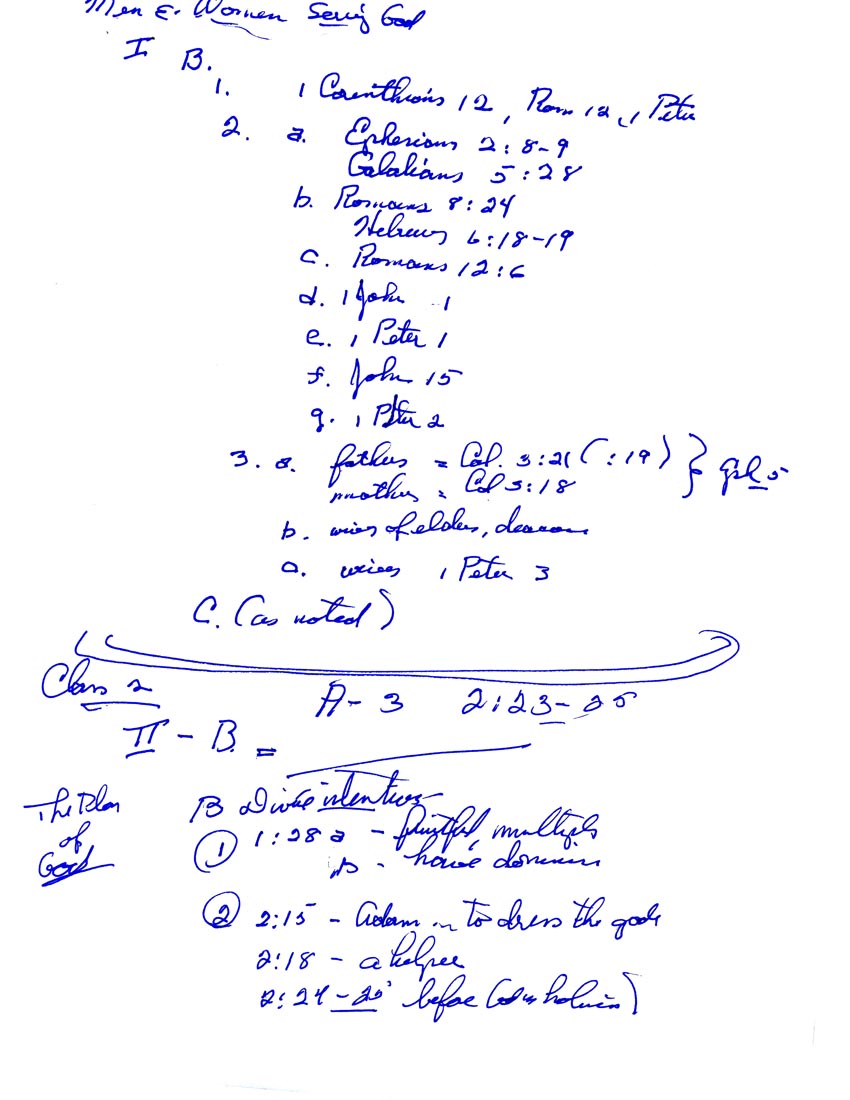 Men & Women Serving God
I B.
1. 1 Corinthians 12, Rom 12, 1 Peter
2. a. Ephesians 2:8-9
Galatians 5:28
b. Romans 8:24
Hebrews 6:18-19
c. Romans 12:6
d. 1 John 1
e. 1 Peter 1
f. John 15
g. 1 Peter 2
3. a. fathers = Col. 3:21 (:19) } 5
mothers = Col 3:18
b. wives of elders, deacons
c. wives 1 Peter 3
C. (as noted)
Class 2
A-3 2:23-25
II - B. =
The Plan of God
B Divine intention
1 1:28 a - fruitful, multiply
b - have dominion
2 2:15 - Adam to dress the
2:18 - a helper
2:24-25 before